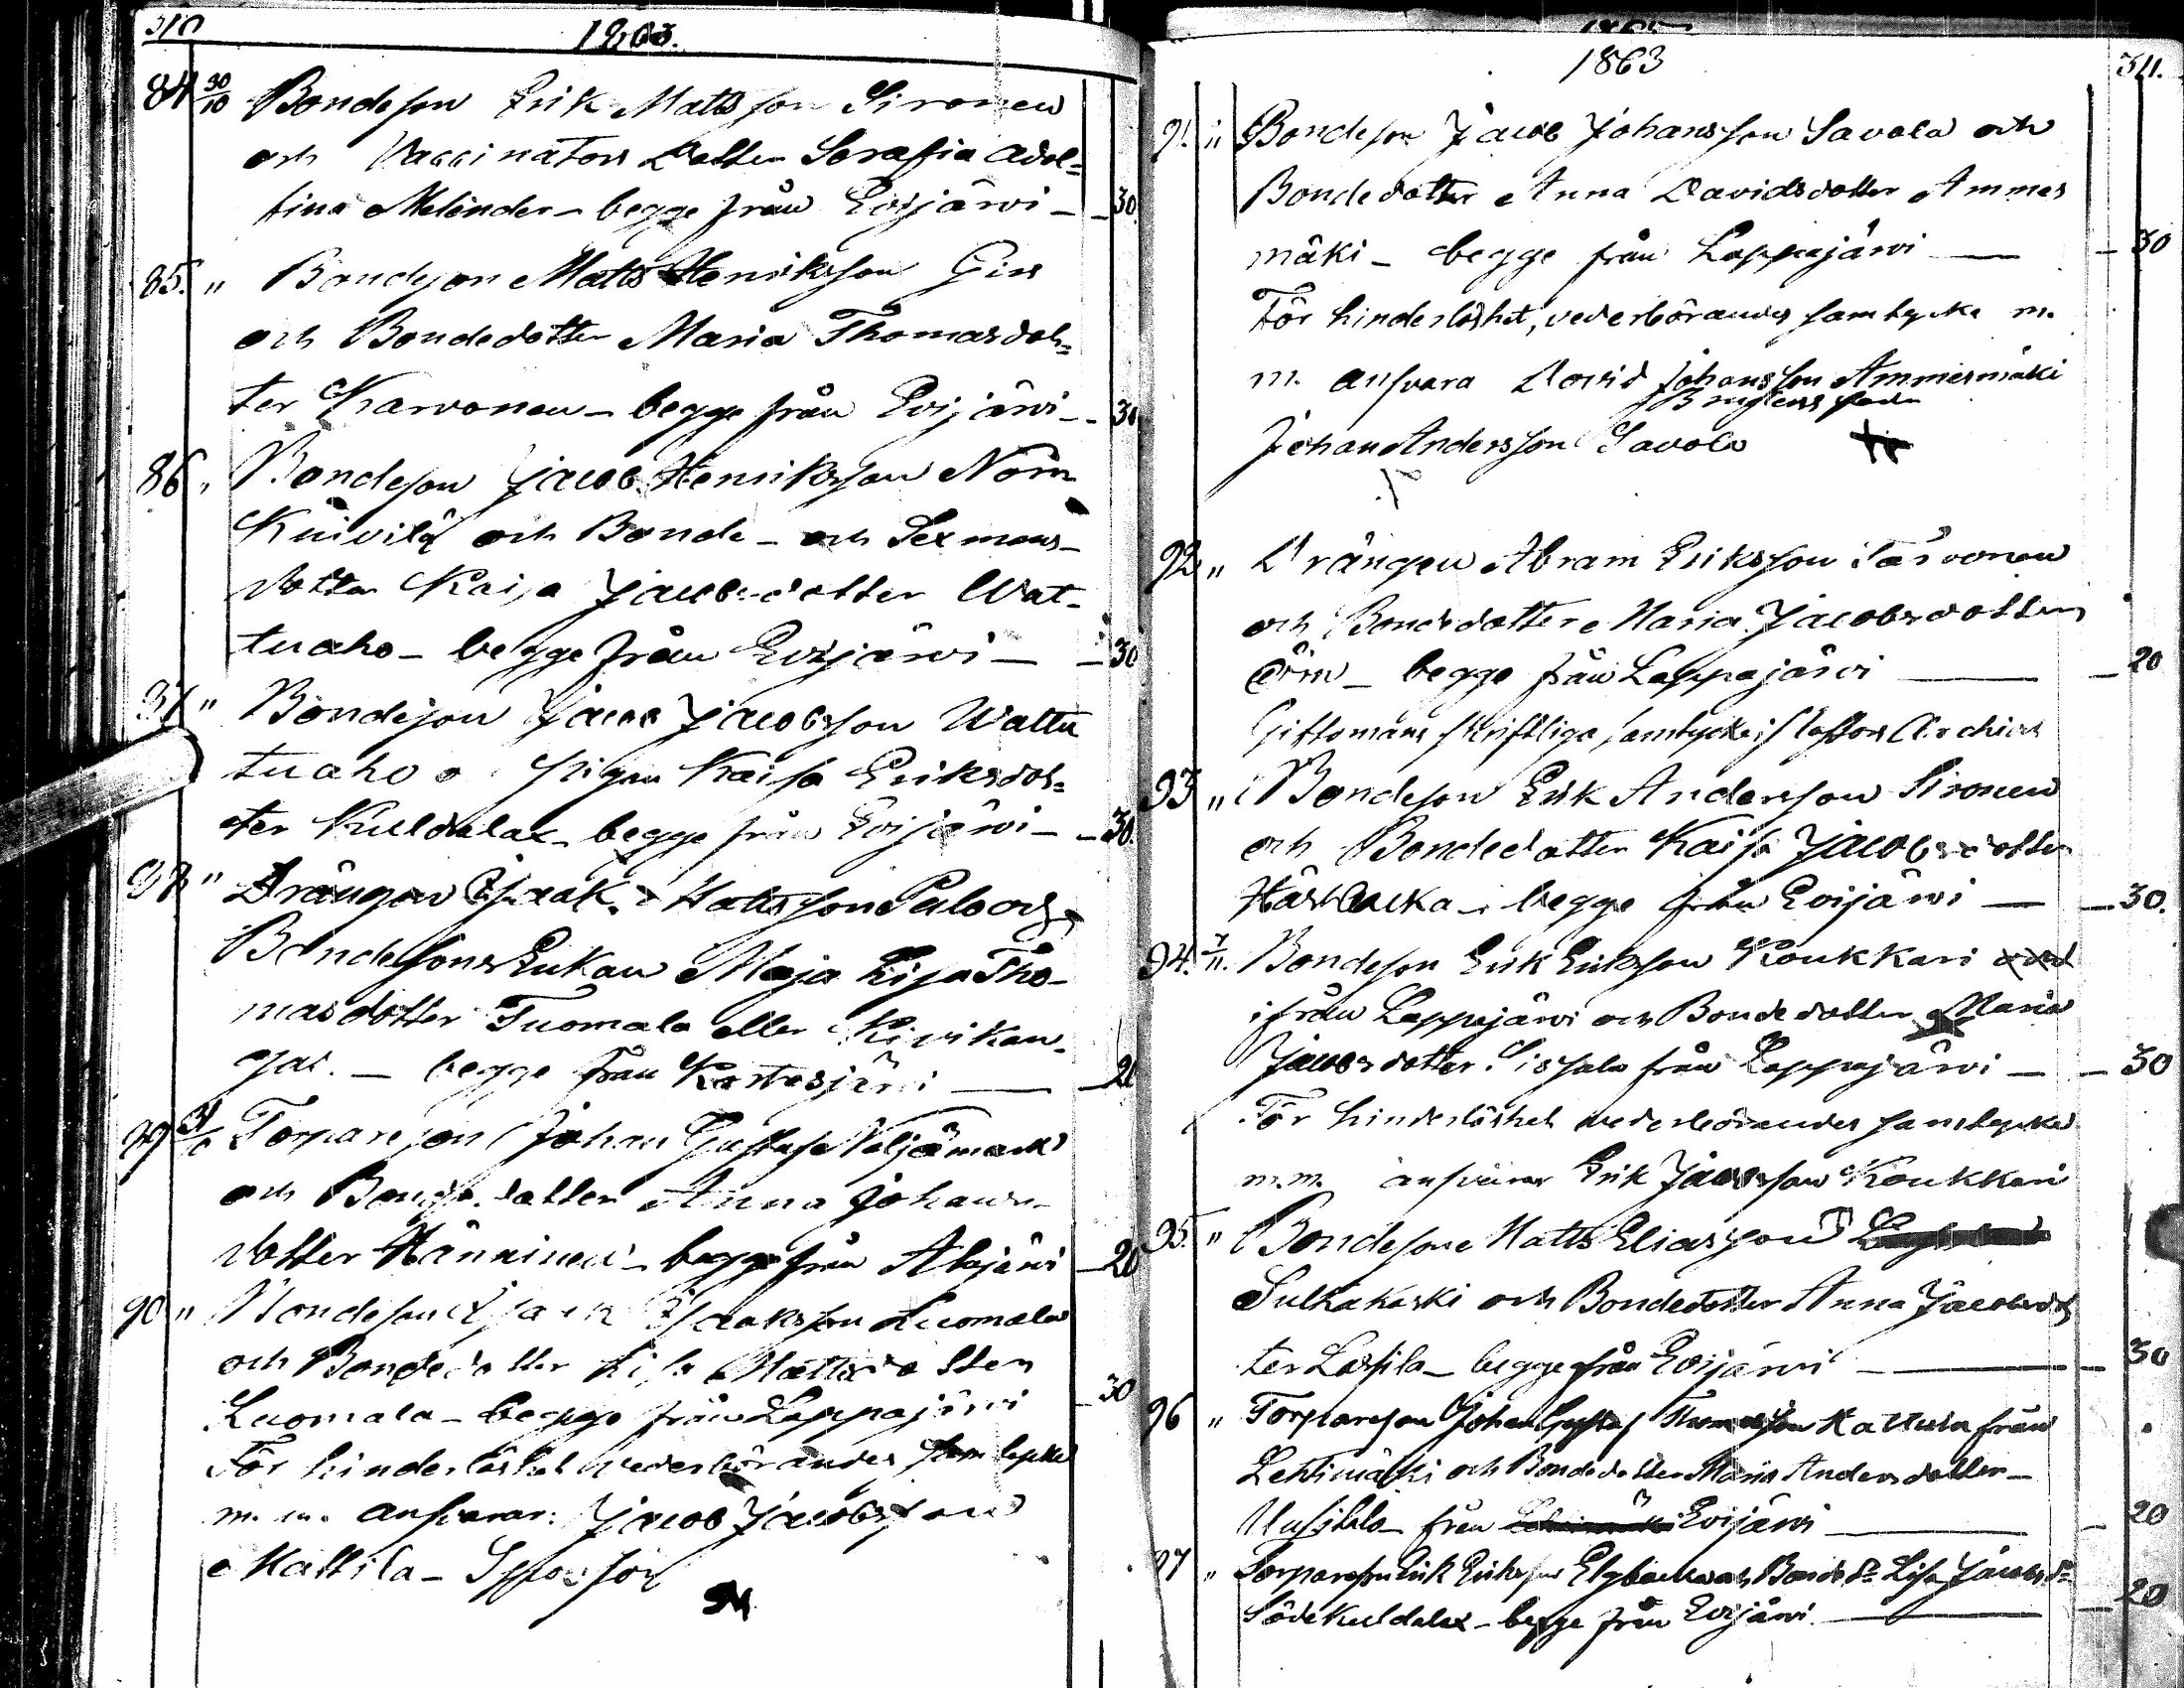 310
1863.
84 30/10 Bondeson Erik Matts son Sironen
och Vaccinators Dotter Serafia Adol=
fina Melender - begge från Evijärvi - - 30.
85. " Bondeson Matts Henriksson Gers
och Bondedotter Maria Thomasdot=
ter Karvonen - begge från Evijärvi - - 30
86 " Bondeson Jacob Henriksson Norn
Kuivila och Bonde - och Sexmans-
dotter Kaisa Jacobsdotter Wat-
tuaho - begge från Evijärvi - - 30
87 " Bondeson Jacob Jacobsson Wattu
tuaho o Pigan Kaisa Eriksdot=
ter Kuldalax - begge från Evijärvi - - 30.
88 " Drängen Isaak Mattsson Palo och
Bondesons Enkan Maja Lisa Tho-
masdotter Tuomala eller Kivikan-
gas. - begge från Kortesjärvi - 20
89 31/10 Torpareson Johan Gustaf Neljämark
och Bondedotter Anna Johans-
dotter Hänninen - begge från Alajärvi - 20
90 " Bondeson Isaak Isaaksson Luomala
och Bondedotter Lisa Mattsdotter
Luomala - begge från Lappajärvi - 30
För hinderlöshet vederbörandes samtycke
m. m. ansvarar: Jacob Jacobsson
Mattila - Sponsor
1863
311.
91. " Bondeson Jacob Johansson Savola och
Bondedotter Anna Davidsdotter Ammes
mäki - begge från Lappajärvi - 30
För hinderlöshet, vederbörandes samtycke m.
m. ansvara David Johansson Ammesmäki
Brudens fader
Johan Andersson Savola
92 " Drängen Abram Eriksson Tarvonen
och Bondedotter Maria Jacobsdotter
Örn - begge från Lappajärvi - 20
Giftomans skriftliga samtycke i Pastors Archivet
93 " Bondeson Erik Andersson Sironen
och Bondedotter Kaisa Jacobsdotter
Härbacka - begge från Evijärvi - 30.
94. 7/11. Bondeson Erik Eriksson Koukkari
ifrån Lappajärvi och Bondedotter Maria
Jacobsdotter Sissala från Lappajärvi - - 30
För hinderlöshet vederbörandes samtycke
m.m. ansvarar Erik Jacobsson Koukkari
95. " Bondeson Matts Eliasson
Sulkakoski och Bondedotter Anna Jacobsdot
ter Lassila - begge från Evijärvi - 30
96 " Torpareson Johan Gustaf Thomasson Kattula från
Lehtimäki och Bondedotter Maria Andersdotter -
Uusitalo från Evijärvi - 20
97 " Torpareson Erik Eriksson Elgbacka och Bonde dr Lisa Jacobs dr
Söderkuldalax - begge från Evijärvi - 20